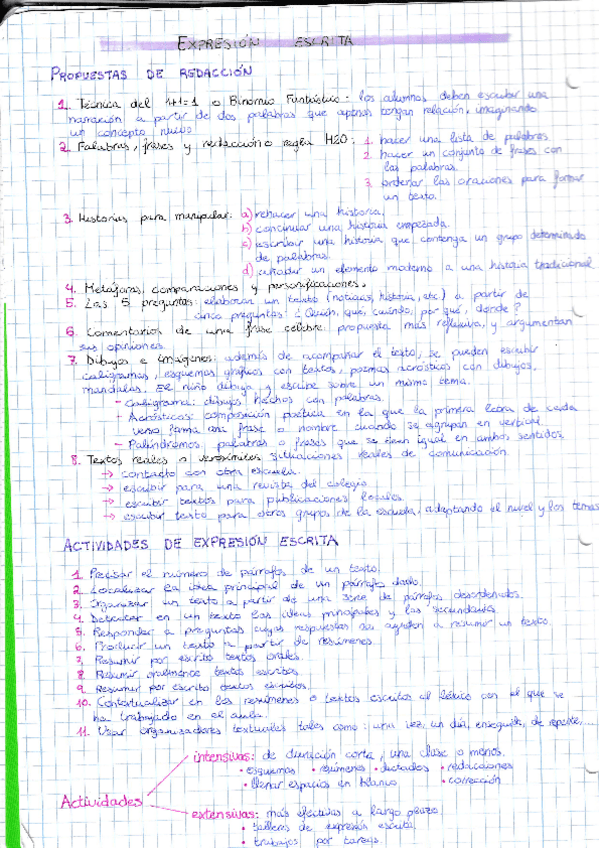 EXPRESIÓN ESCRITA
PROPUESTAS DE REDACCIÓN
1. Técnica del 1+1=1 o Binomio Fantástico: los alumnos deben escribir una
narración a partir de dos palabras que apenas tengan relación, imaginando
un concepto nuevo
2. Palabras, frases y redacción o regla H2O: 1. hacer una lista de palabras
2. hacer un conjunto de frases con
las palabras.
3. ordenar las oraciones para formar
un texto.
3. Historias para manipular: a) rehacer una historia.
b) continuar una historia empezada.
c) escribir una historia que contenga un grupo determinado
de palabras.
d) añadir un elemento moderno a una historia tradicional.
4. Metáforas, comparaciones y personificaciones.
5. Las 5 preguntas: elaboran un texto (noticias, historia, etc) a partir de
cinco preguntas: ¿Quién, qué, cuándo, por qué, dónde?
6. Comentarios de una frase célebre: propuesta más reflexiva, y argumentan
sus opiniones.
7. Dibujos e imágenes: además de acompañar el texto, se pueden escribir
caligramas, esquemas gráficos con textos, poemas acrósticos con dibujos,
mandalas. El niño dibuja y escribe sobre un mismo tema.
- Caligrama: dibujos hechos con palabras.
- Acrósticos: composición poética en la que la primera letra de cada
verso forma una frase o nombre cuando se agrupan en vertical.
- Palíndromos: palabras o frases que se leen igual en ambos sentidos.
8. Textos reales o verosímiles: situaciones reales de comunicación.
→ contacto con otra escuela.
→ escribir para una revista del colegio
→ escribir textos para publicaciones locales.
→ escribir texto para otros grupos de la escuela, adaptando el nivel y los temas
ACTIVIDADES DE EXPRESIÓN ESCRITA
1. Precisar el número de párrafos de un texto.
2. Localizar la idea principal de un párrafo dado.
3. Organizar un texto a partir de una serie de párrafos desordenados.
4. Detectar en un texto las ideas principales y las secundarias
5. Responder a preguntas cuyas respuestas ayuden a resumir un texto.
6. Producir un texto a partir de resúmenes.
7. Resumir por escrito textos orales.
8. Resumir oralmente textos escritos
9. Resumir por escrito textos escritos.
10. Contextualizar en los resúmenes o textos escritos el léxico con el que se
ha trabajado en el aula.
11. Usar organizadores textuales tales como: una vez, un día, enseguida, de repente,...
Actividades
intensivas: de duración corta, una clase o menos.
• esquemas • resúmenes • dictados • redacciones
• llenar espacios en blanco • corrección
extensivas: más efectivas a largo plazo
• talleres de expresión escrita.
• trabajos por tareas.